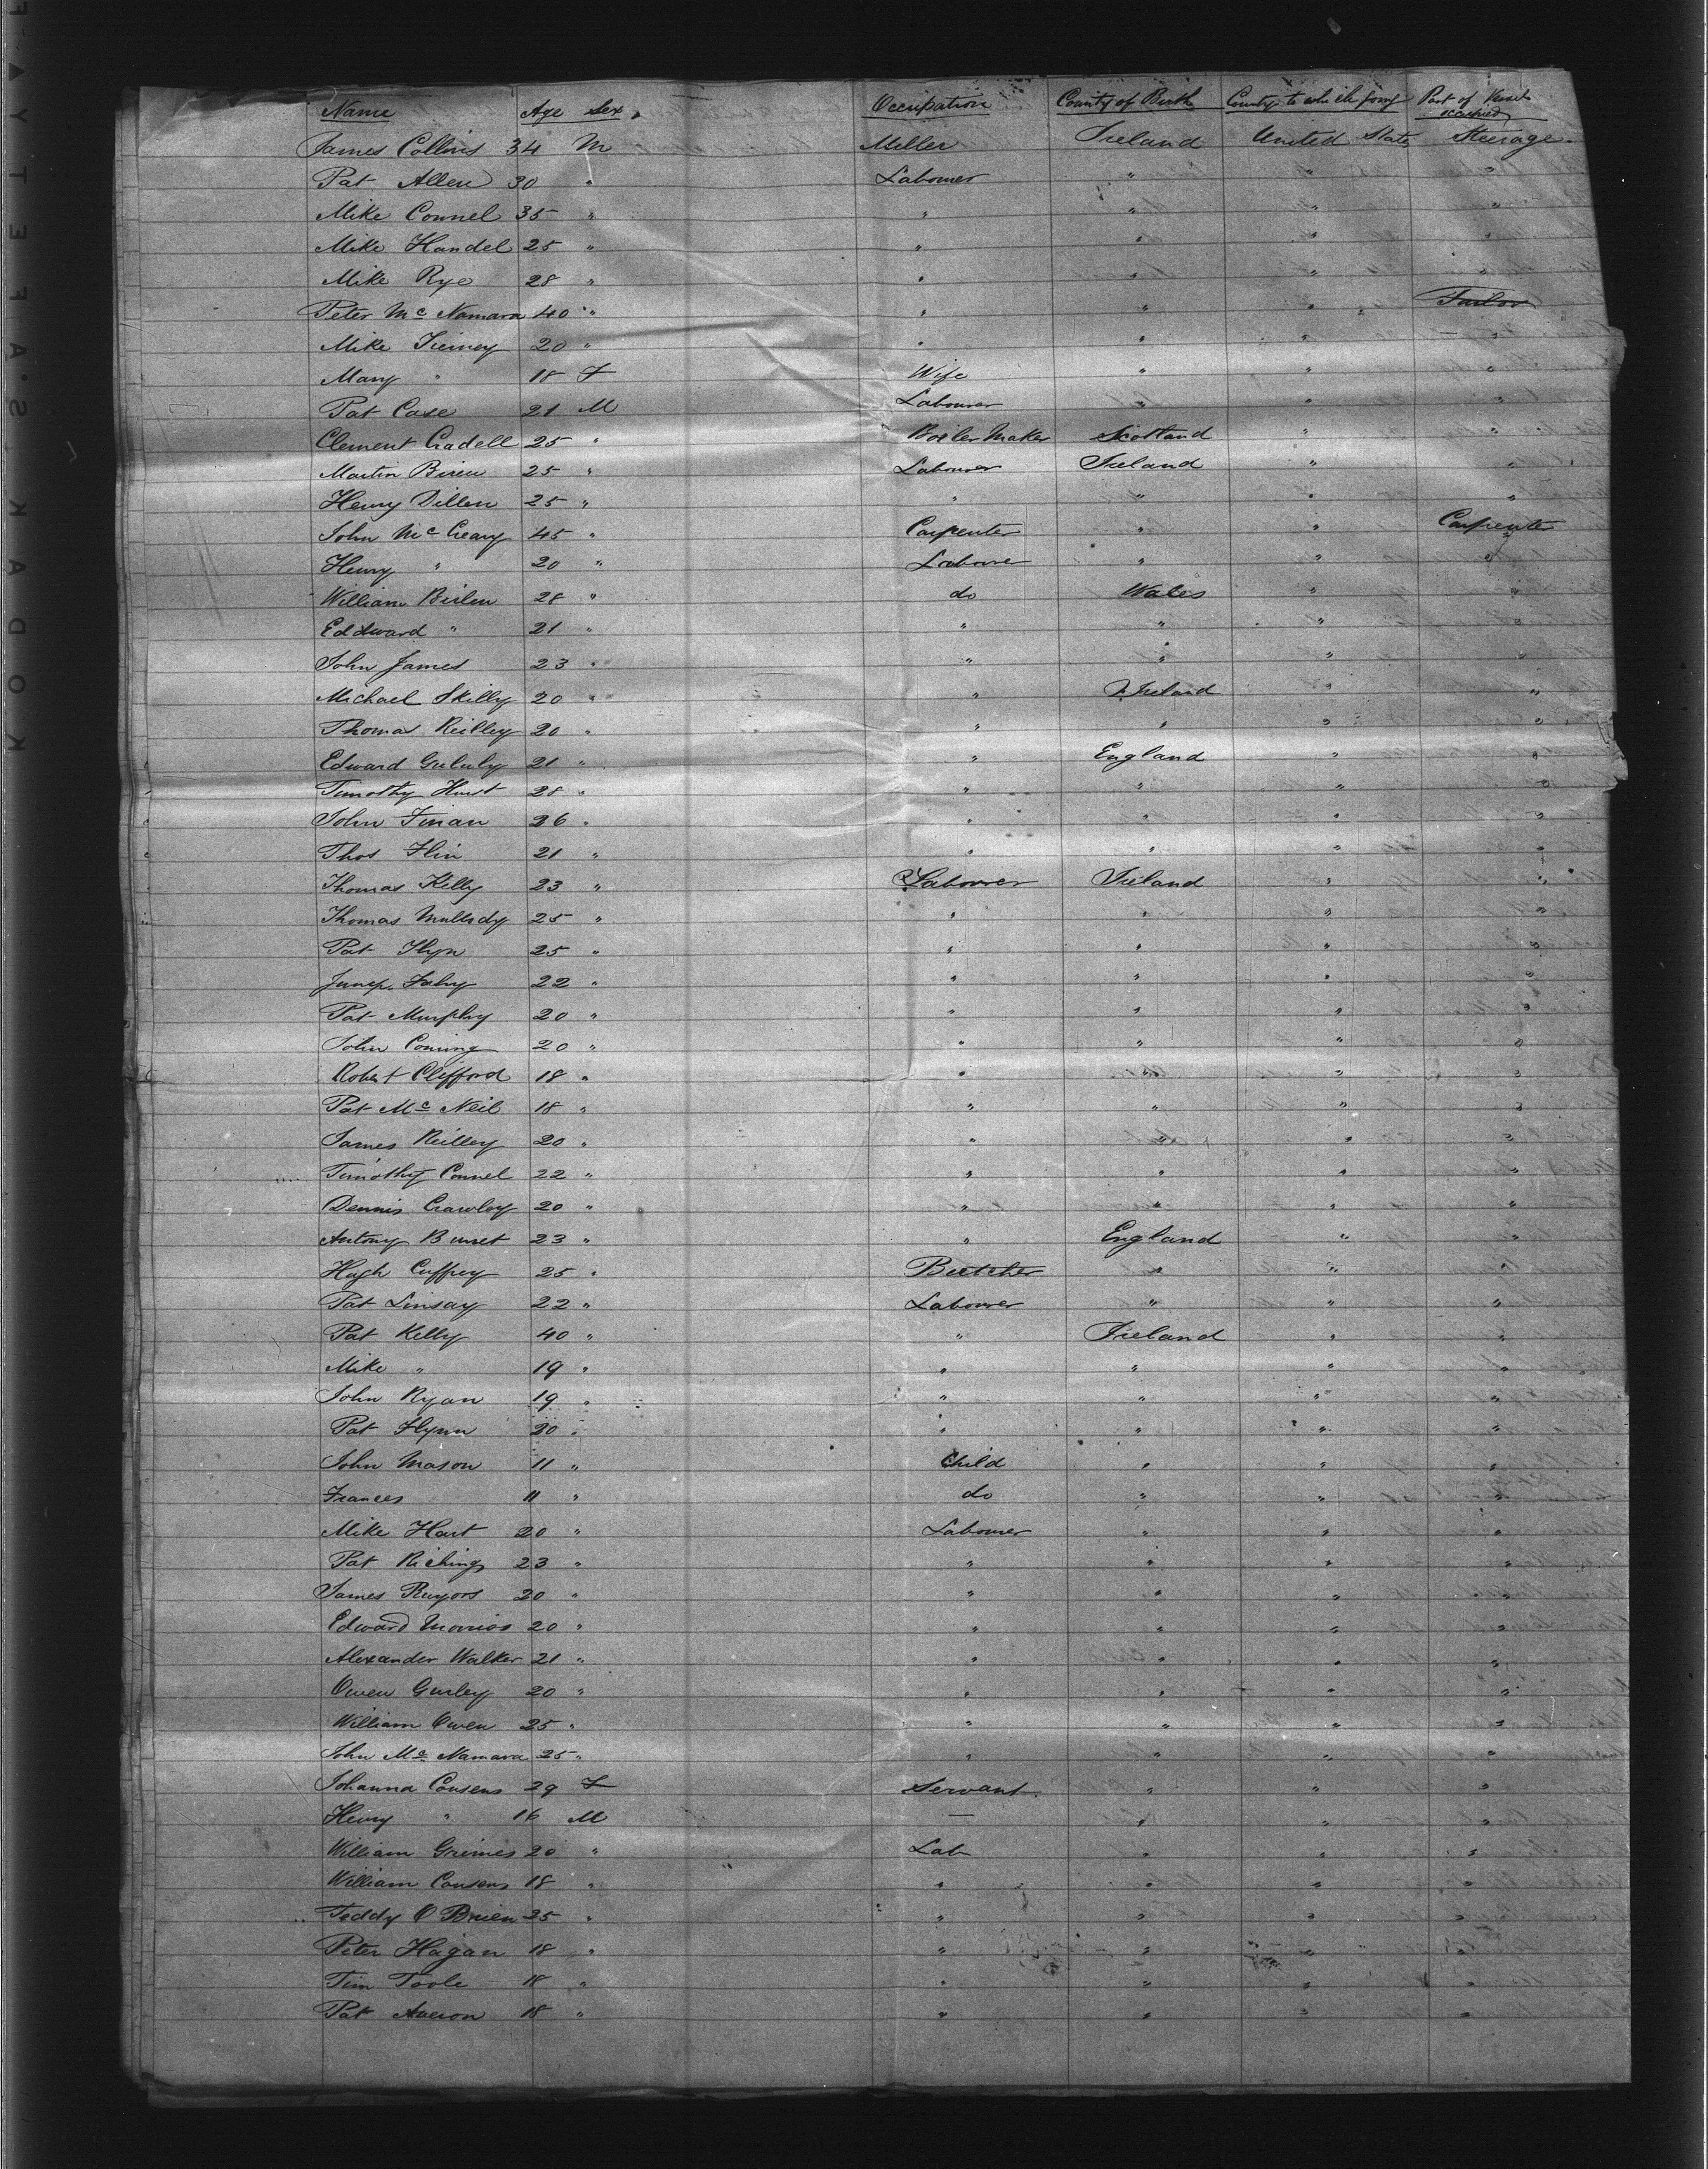 Name Age Sex Occupation County of Birth County to which going Part of Vessel occupied
James Collins 34 M Miller Ireland United States Steerage
Pat Allen 30 " Labourer " " "
Mike Connel 35 " " " " "
Mike Handel 25 " " " " "
Mike Rye 28 " " " " "
Peter Mc Namara 40 " " " " Tailor
Mike Tierney 20 " " " " "
Mary " 18 F Wife " " "
Pat Case 21 M Labourer " " "
Clement Cradell 25 " Boiler Maker Scotland " "
Martin Biren 25 " Labourer Ireland " "
Henry Dillen 25 " " " " "
John Mc Creary 45 " Carpenter " " Carpenter
Henry " 20 " Labourer " " "
William Birlen 28 " do Wales " "
Eddward " 21 " " " " "
John James 23 " " " " "
Michael Skilly 20 " " Ireland " "
Thomas Reilley 20 " " " " "
Edward 21 " " England " "
Timothy Hurst 28 " " " " "
John Finan 26 " " " " "
Thos Flin 21 " " " " "
Thomas Kelly 23 " Labourer Ireland " "
Thomas Mulledy 25 " " " " "
Pat Flyn 25 " " " " "
Fahy 22 " " " " "
Pat Murphy 20 " " " " "
John Coming 20 " " " " "
Robert Clifford 18 " " " " "
Pat Mc Neil 18 " " " " "
James Reilley 20 " " " " "
Timothy Connel 22 " " " " "
Dennis Crawley 20 " " " " "
Antony Burret 23 " " England " "
Hugh Cuffrey 25 " Butcher " " "
Pat Linsay 22 " Labourer " " "
Pat Kelly 40 " " Ireland " "
Mike " 19 " " " " "
John Ryan 19 " " " " "
Pat Flynn 20 " " " " "
John Mason 11 " Child " " "
Frances 11 " do " " "
Mike Hart 20 " Labourer " " "
Pat Richings 23 " " " " "
James Ruyors 20 " " " " "
Edward Morrios 20 " " " " "
Alexander Walker 21 " " " " "
Owen Gurley 20 " " " " "
William Owen 25 " " " " "
John Mc Namara 25 " " " " "
Johanna Cousens 29 F Servant " " "
Henry " 16 M — " " "
William Grimes 20 " Lab " " "
William Cousens 18 " " " " "
Teddy O Brien 35 " " " " "
Peter Hagan 18 " " " " "
Tim Toole 18 " " " " "
Pat Averon 18 " " " " "
KODAK S.AFETY